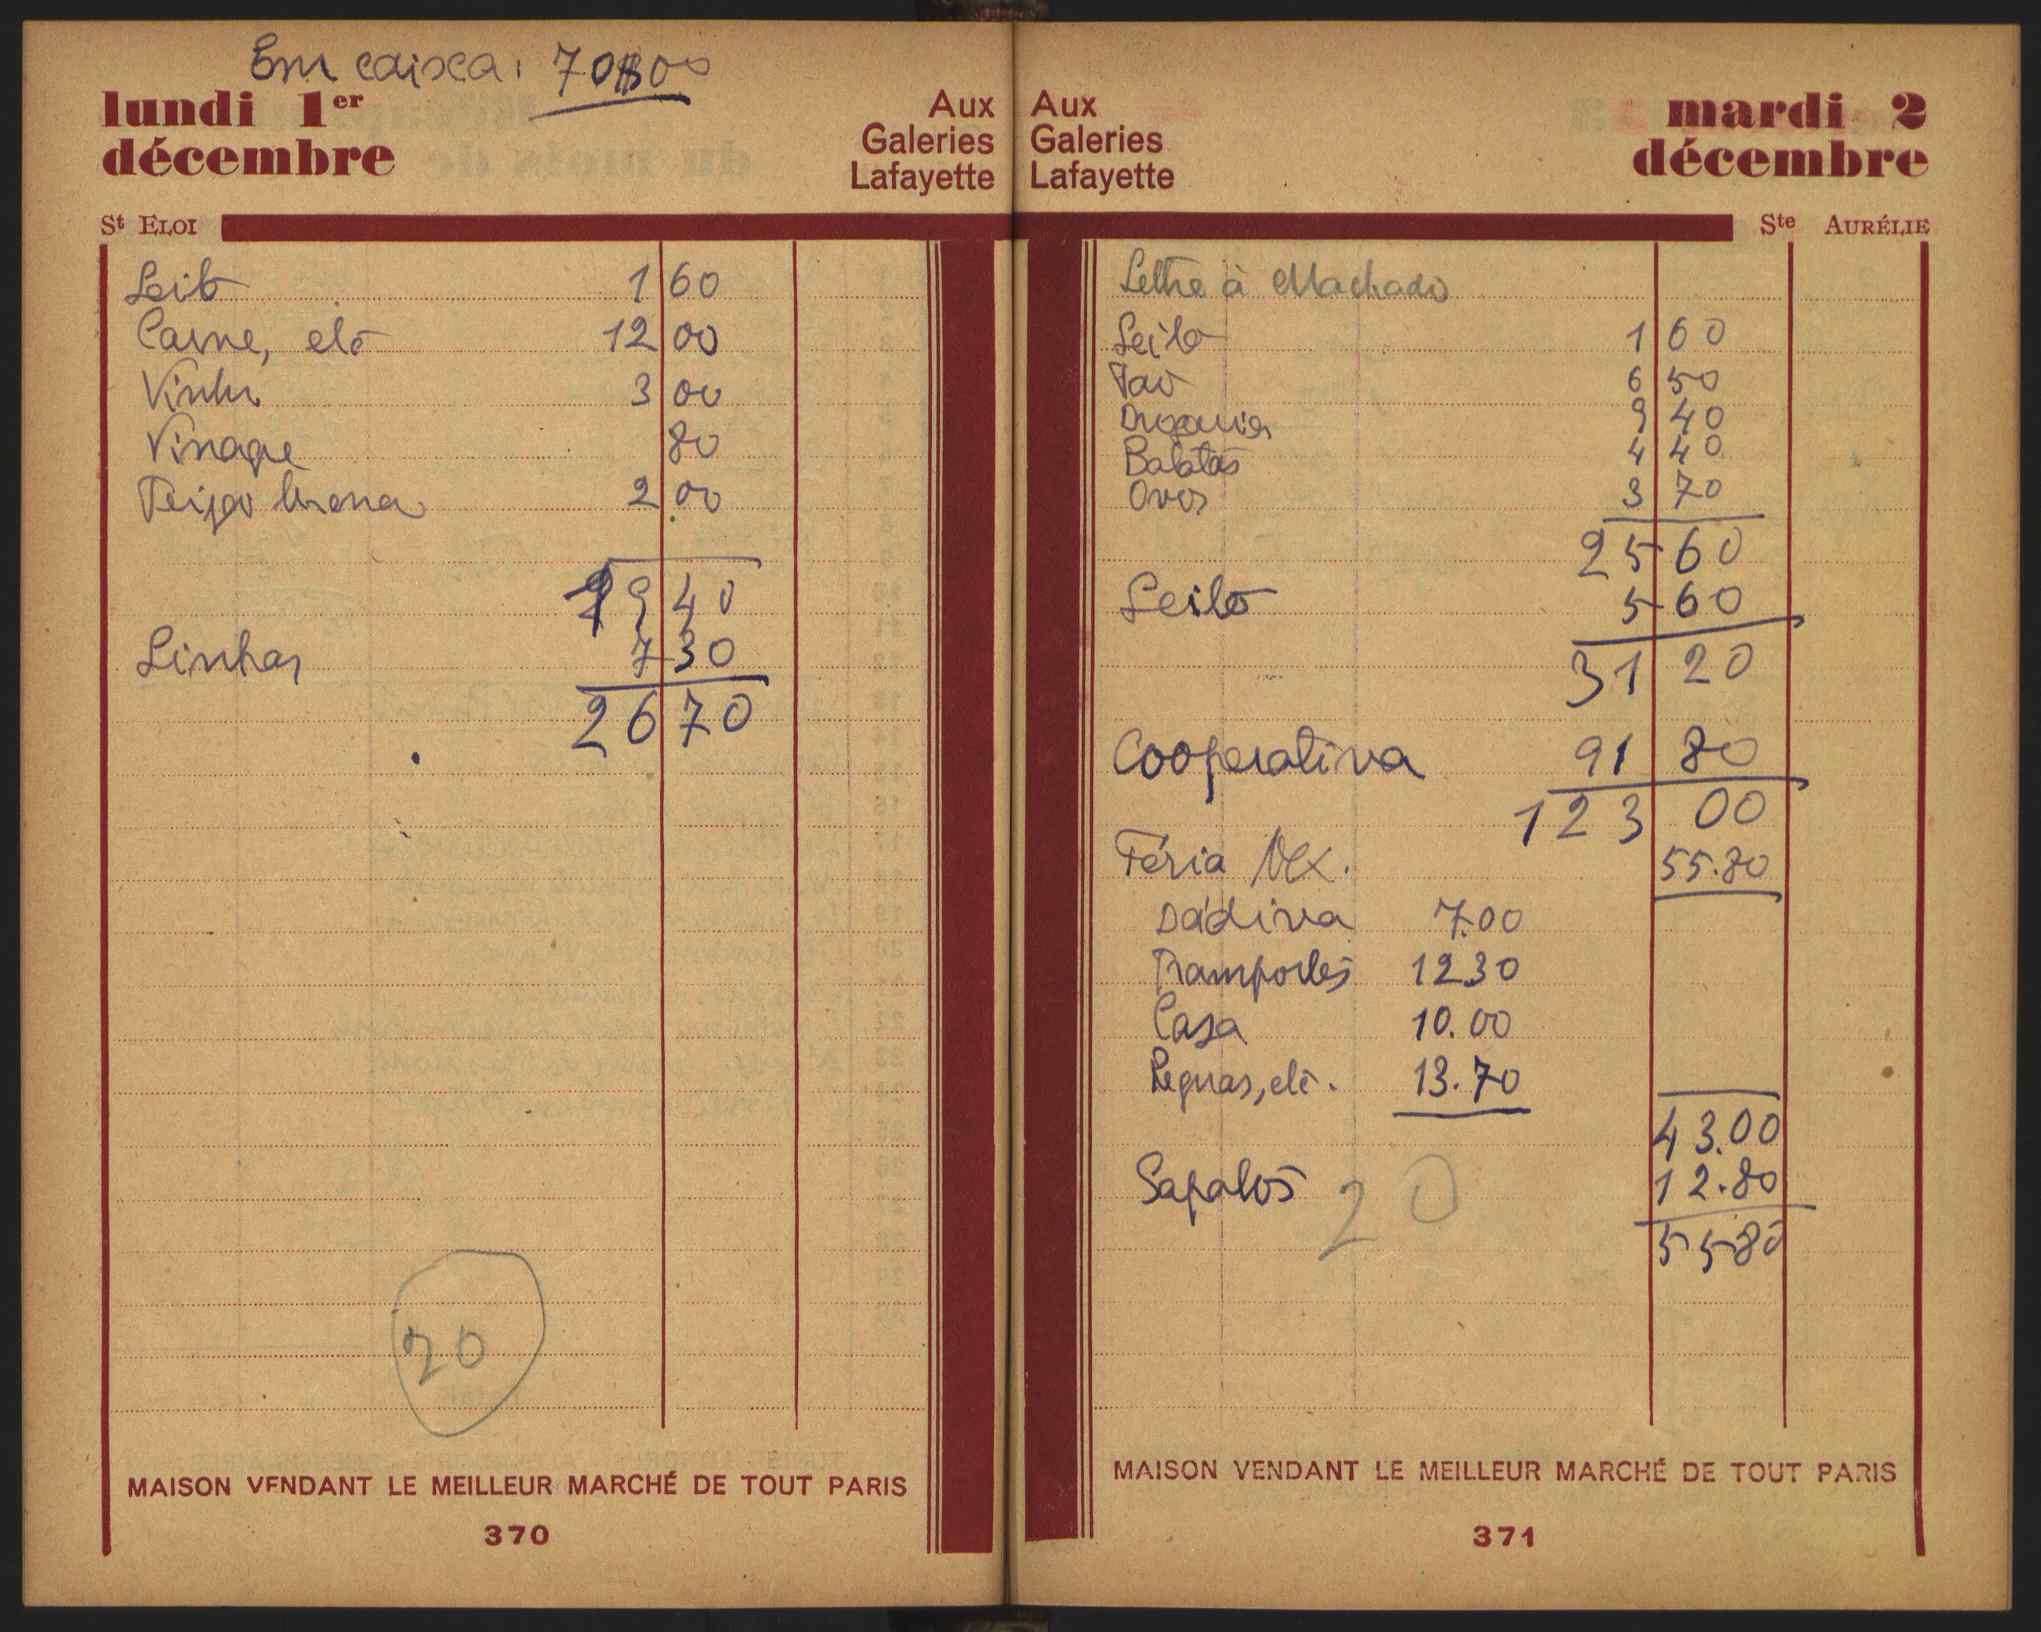 Em caixa: 70$00
lundi 1er
décembre
Aux
Galeries
Lafayette
St ELOI
Leite 1 60
Carne, etc 12 00
Vinho 3 00
Vinagre 80
Feijão 2 00
19 40
Linhas 7 30
26 70
20
MAISON VENDANT LE MEILLEUR MARCHÉ DE TOUT PARIS
370
Aux
Galeries
Lafayette
mardi 2
décembre
Ste AURÉLIE
Lettre à Machado
Leite 1 60
Pão 6 50
Drogaria 9 40
Batatas 4 40
Ovos 3 70
25 60
Leite 5 60
31 20
Cooperativa 91 80
123 00
Féria 55.80
Dádiva 7.00
Transportes 12.30
Casa 10.00
Reguas, etc. 13.70
43.00
Sapatos 20 12.80
55 80
MAISON VENDANT LE MEILLEUR MARCHÉ DE TOUT PARIS
371